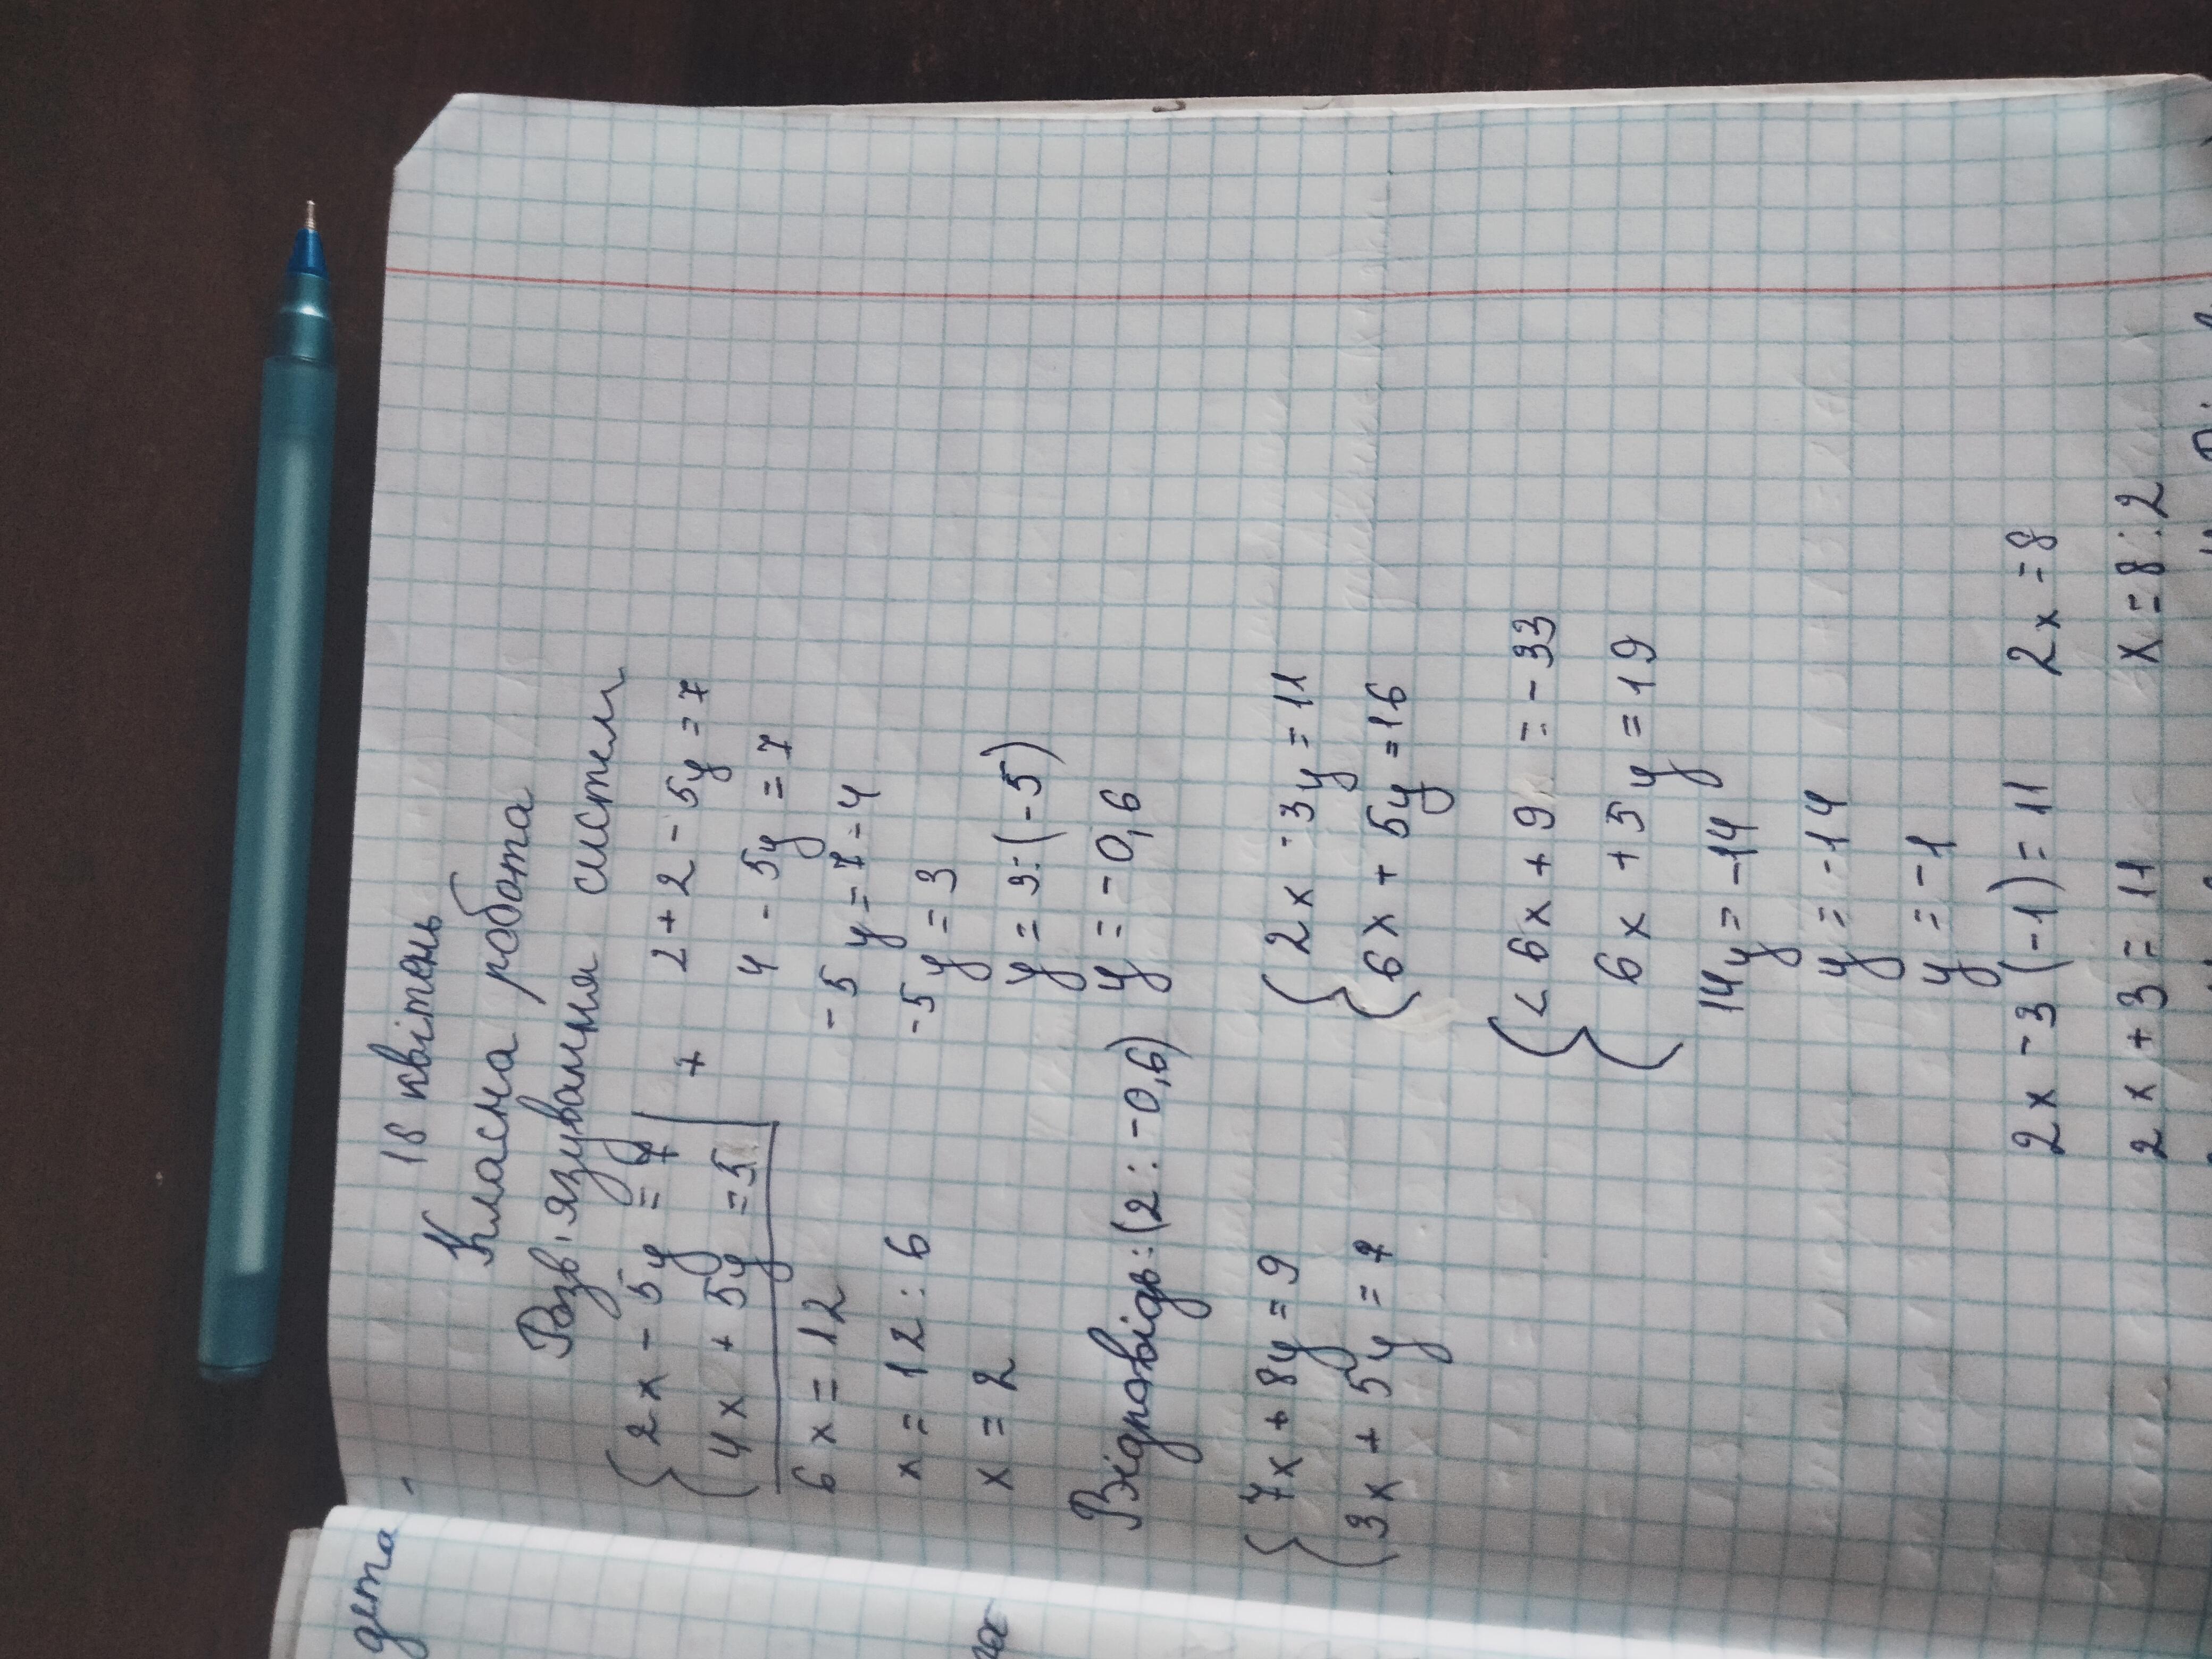 18 квітень
Класна робота
Розв'язування систем
{2x - 5y = 7 | +
{4x + 5y = 5
6x = 12
x = 12 : 6
x = 2
2 + 2 - 5y = 7
4 - 5y = 7
-5y = 7 - 4
-5y = 3
y = 3 : (-5)
y = -0,6
Відповідь: (2 : -0,6)
{7x + 8y = 9
{3x + 5y = 7
{2x - 3y = 11
{6x + 5y = 16
{< 6x + 9 = -33
{6x + 5y = 19
14y = -14
y = -14
y = -1
2x - 3(-1) = 11
2x + 3 = 11
2x = 8
x = 8 : 2
дета